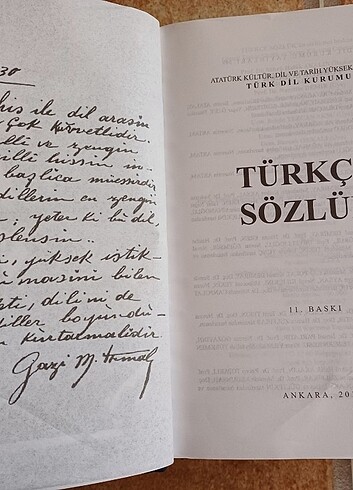 30
his ile dil arasın
çok kuvvetlidir.
illî ve zengin
illî hissin in-
başlıca müessirdir
dillerin en zengin
; yeter ki bu dil,
işlensin..
, yüksek istik-
masını bilen
ti, dilini de
diller boyundu-
kurtarmalıdır.
Gazi M. Kemal
ATATÜRK KÜLTÜR, DİL VE TARİH YÜKSEK
TÜRK DİL KURUMU
TÜRKÇ
SÖZLÜ
11. BASKI
ANKARA, 20